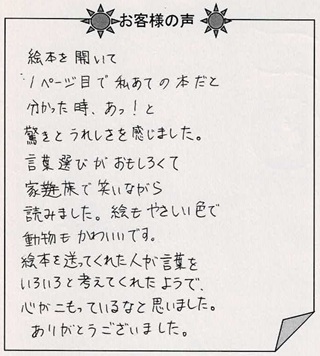 お客様の声
絵本を開いて
1ページ目で私あての本だと
分かった時、あっ！と
驚きとうれしさを感じました。
言葉選びがおもしろくて
家族で笑いながら
読みました。絵もやさしい色で
動物もかわいいです。
絵本を送ってくれた人が言葉を
いろいろと考えてくれたようで、
心がこもっているなと思いました。
ありがとうございました。